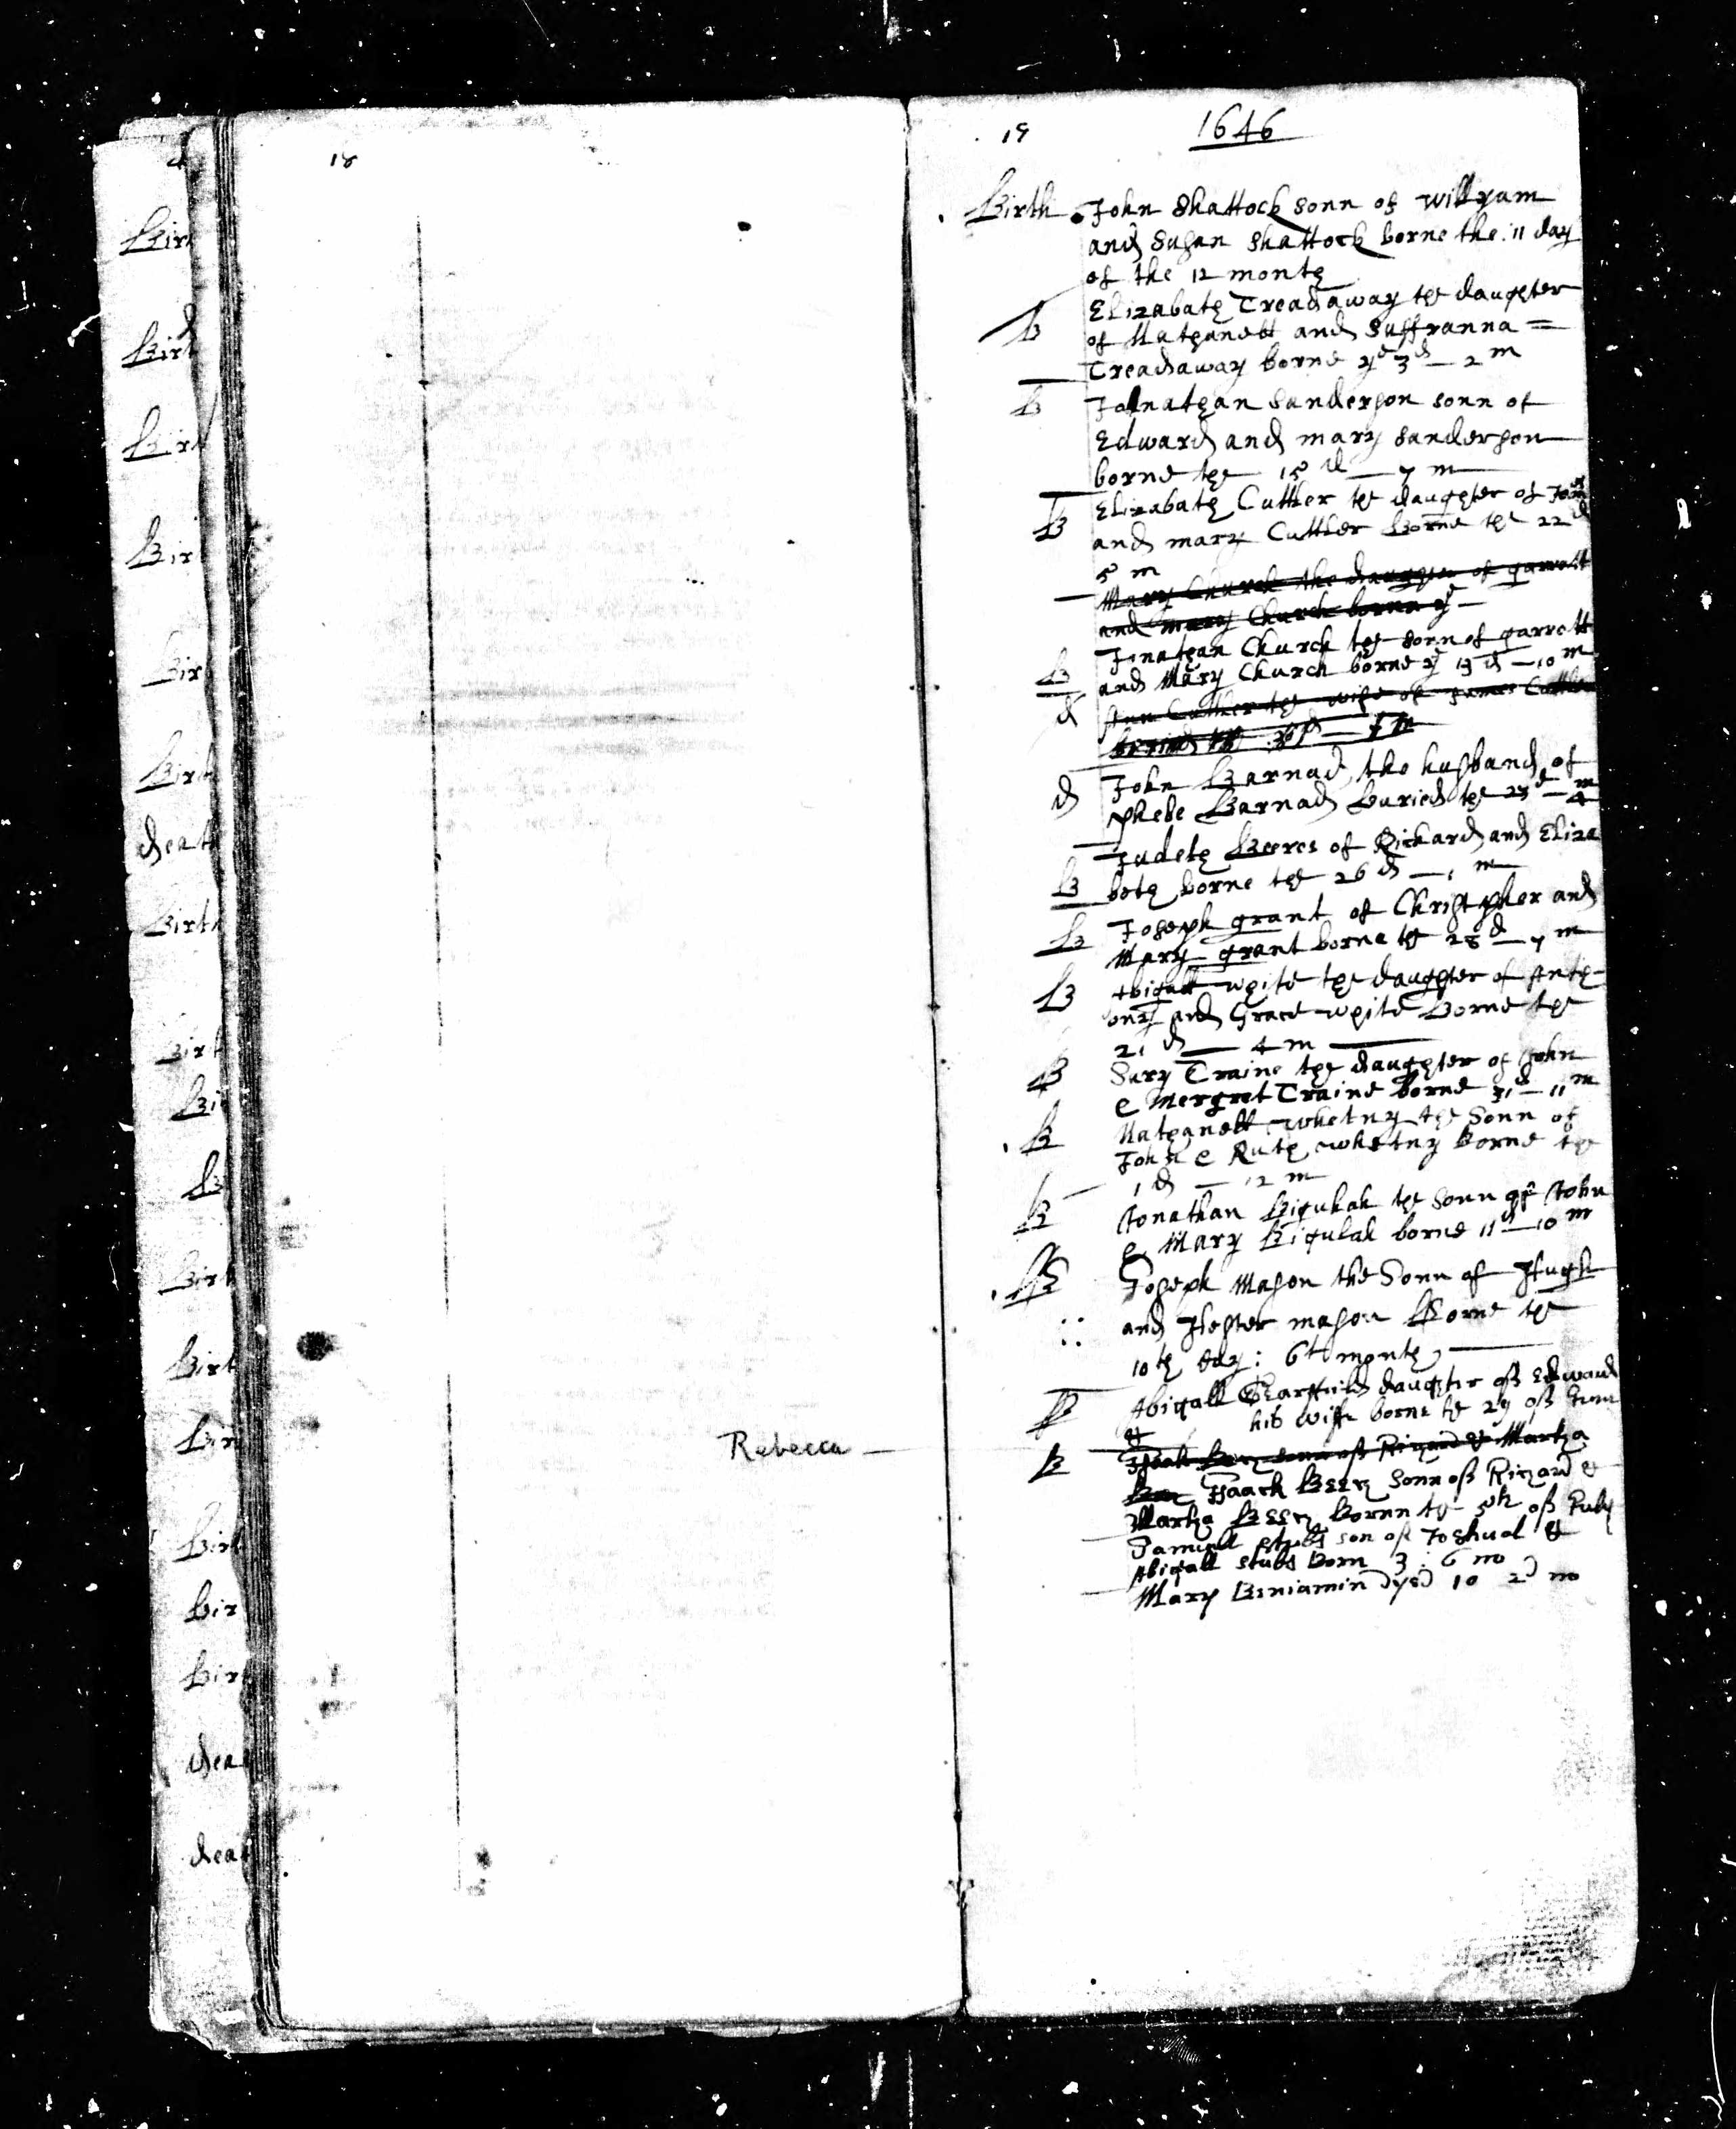 18
Birt
Birt
Birt
Birt
Bir
Birt
death
Birth
Birt
Bi
B
Birt
Birt
Bir
Birt
bir
Birt
dea
dea
Rebecca
19
1646
Birth John Shattock sonn of willyam
and Susan Shattock borne the 11 day
of the 12 month
B Elizabath Treadaway the daughter
of Nathanell and Suffranna =
Treadaway borne ye 3d — 2 m
B Johnathan Sanderson sonn of
Edward and mary Sanderson
borne the 15 d — 7 m
B Elizabath Cuttler the daughter of John
and mary Cuttler Borne the 22 d
5 m
Mary Church the daughter of garrett
and mary Church borne ye —
B Jonathan Church the sonn of garrett
and Mary Church borne ye 13 d — 10 m
d Ann Cuttler the wife of James Cuttler
d John Barnad the husband of
Phebe Barnad buried the
B Judeth Beeres of Richard and Eliza
beth borne the 26 d — 1 m
B Joseph grant of Christopher and
Mary grant borne the 28 d — 7 m
B Abigall white the daughter of Anth-
ony and Grace white Borne the
21 d — 4 m
B Sary Traine the daughter of John
& Mergret Traine borne 31 d — 11 m
B Nathanell whetny the Sonn of
John & Ruth whetny Borne the
1 d — 12 m
B Jonathan Bigulah the Sonn of John
& Mary Bigulah borne 11 d — 10 m
B Joseph Mason the Sonn of Hugh
and Hester mason Borne the
10th day : 6t month
B Abigall Garfeild daughter of Edward
& his wife borne the 29 of June
B Isaak sonn of Richard & Martha
Isaack Beers Sonn of Richard &
Martha Beers Bornn the 5th of July
Samuell stubs son of Joshual &
Abigall stubs Born 3 : 6 mo
Mary Beniamin dyed 10 2d mo